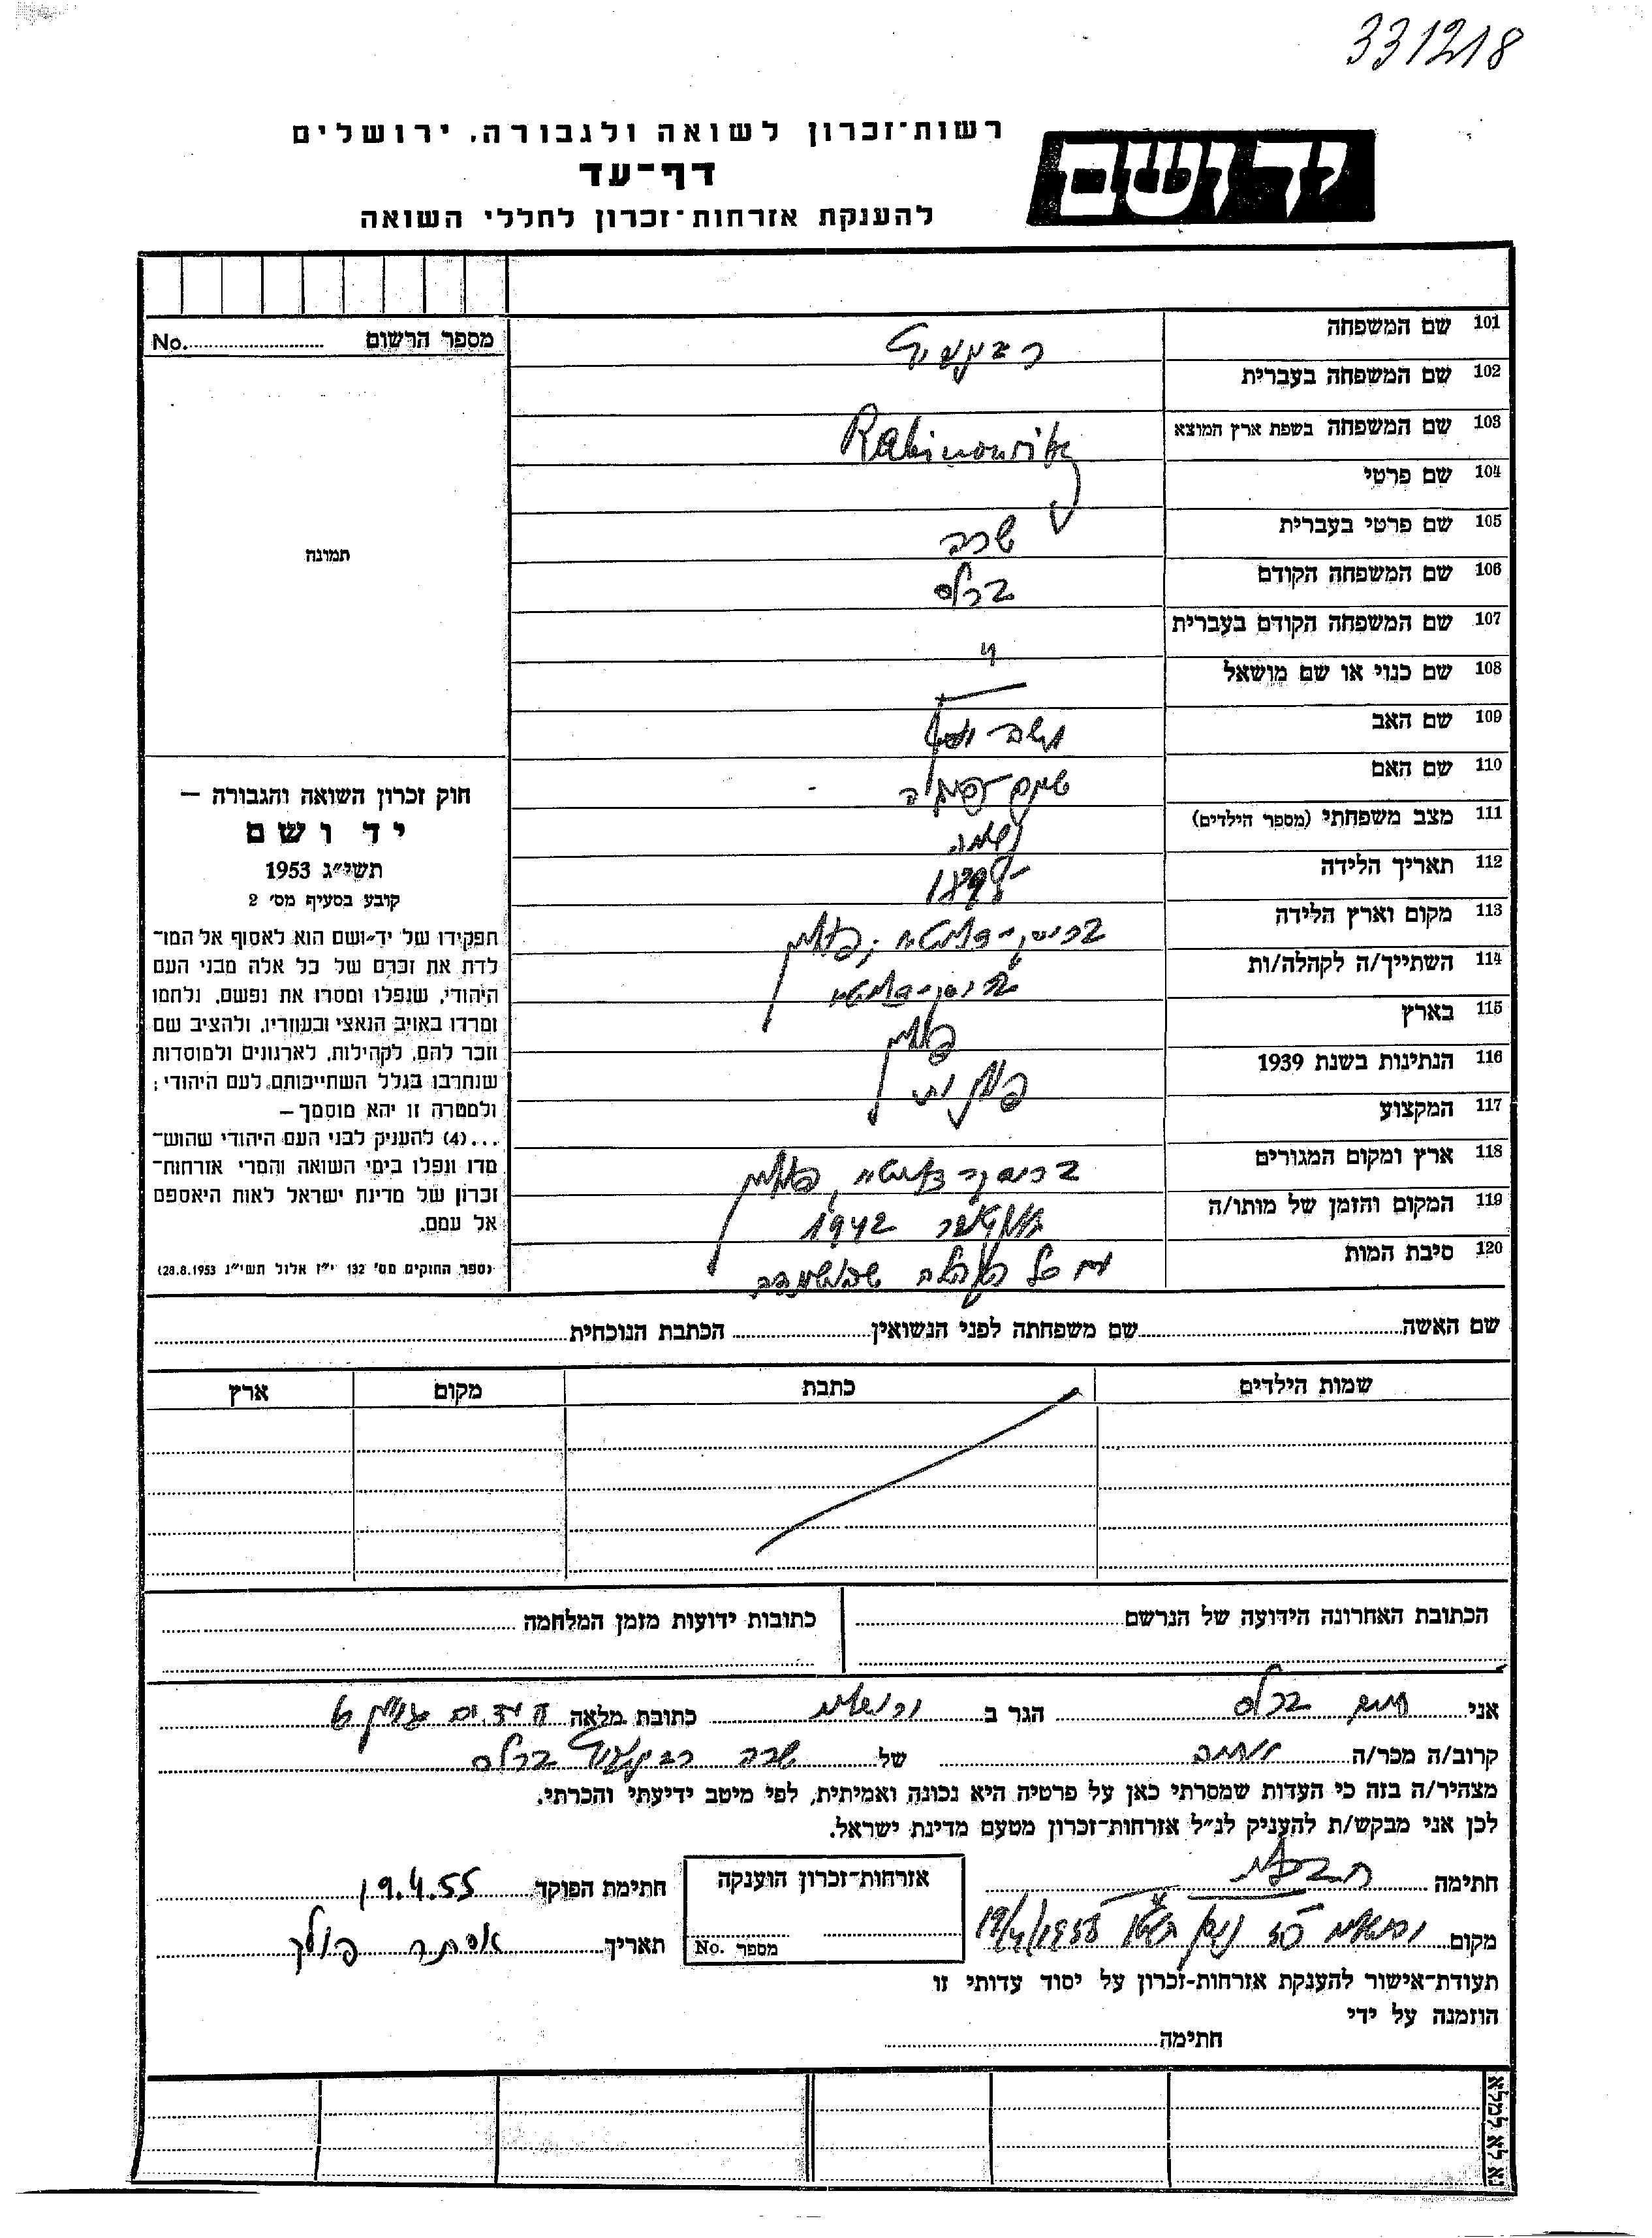 331218
רשות־זכרון לשואה ולגבורה, ירושלים
דף־עד
להענקת אזרחות־זכרון לחללי השואה
ידושם
101 שם המשפחה
רבינוביץ
102 שם המשפחה בעברית
103 שם המשפחה בשפת ארץ המוצא
Rabinowitz
104 שם פרטי
105 שם פרטי בעברית
שרה
106 שם המשפחה הקודם
ברלס
107 שם המשפחה הקודם בעברית
"
108 שם כנוי או שם מושאל
109 שם האב
משה יוסף
110 שם האם
111 מצב משפחתי (מספר הילדים)
נשואה
112 תאריך הלידה
1897
113 מקום וארץ הלידה
בריסק-דליטא, פולין
114 השתייך/ה לקהלה/ות
בריסק-דליטא
115 בארץ
פולין
116 הנתינות בשנת 1939
פולנית
117 המקצוע
118 ארץ ומקום המגורים
בריסק דליטא, פולין
119 המקום והזמן של מותו/ה
1942
120 סיבת המות
עם כל הקהלה שהושמדה
No. מספר הרשום
תמונה
חוק זכרון השואה והגבורה –
יד ושם
תשי״ג 1953
קובע בסעיף מס׳ 2
תפקידו של יד־ושם הוא לאסוף אל המו־
לדת את זכרם של כל אלה מבני העם
היהודי, שנפלו ומסרו את נפשם, נלחמו
ומרדו באויב הנאצי ובעוזריו, ולהציב שם
וזכר להם, לקהילות, לארגונים ולמוסדות
שנחרבו בגלל השתייכותם לעם היהודי;
ולמטרה זו יהא מוסמך –
...(4) להעניק לבני העם היהודי שהוש־
מדו ונפלו בימי השואה והמרי אזרחות־
זכרון של מדינת ישראל לאות היאספם
אל עמם.
(ספר החוקים מס׳ 132 י״ז אלול תשי״ג 28.8.1953)
שם האשה שם משפחתה לפני הנשואין הכתבת הנוכחית
שמות הילדים כתבת מקום ארץ
הכתובת האחרונה הידועה של הנרשם כתובות ידועות מזמן המלחמה
אני חיים ברלס הגר ב ירושלים כתובת מלאה
קרוב/ה מכר/ה של שרה רבינוביץ ברלס
מצהיר/ה בזה כי העדות שמסרתי כאן על פרטיה היא נכונה ואמיתית, לפי מיטב ידיעתי והכרתי.
לכן אני מבקש/ת להעניק לנ״ל אזרחות־זכרון מטעם מדינת ישראל.
חתימה ח. ברלס אזרחות־זכרון הוענקה חתימת הפוקד 19.4.55
מקום ירושלים כז ניסן תשט"ו 19/4/1955 מספר No. תאריך אסתר פולק
תעודת־אישור להענקת אזרחות-זכרון על יסוד עדותי זו
הוזמנה על ידי
חתימה
נא לא למלא